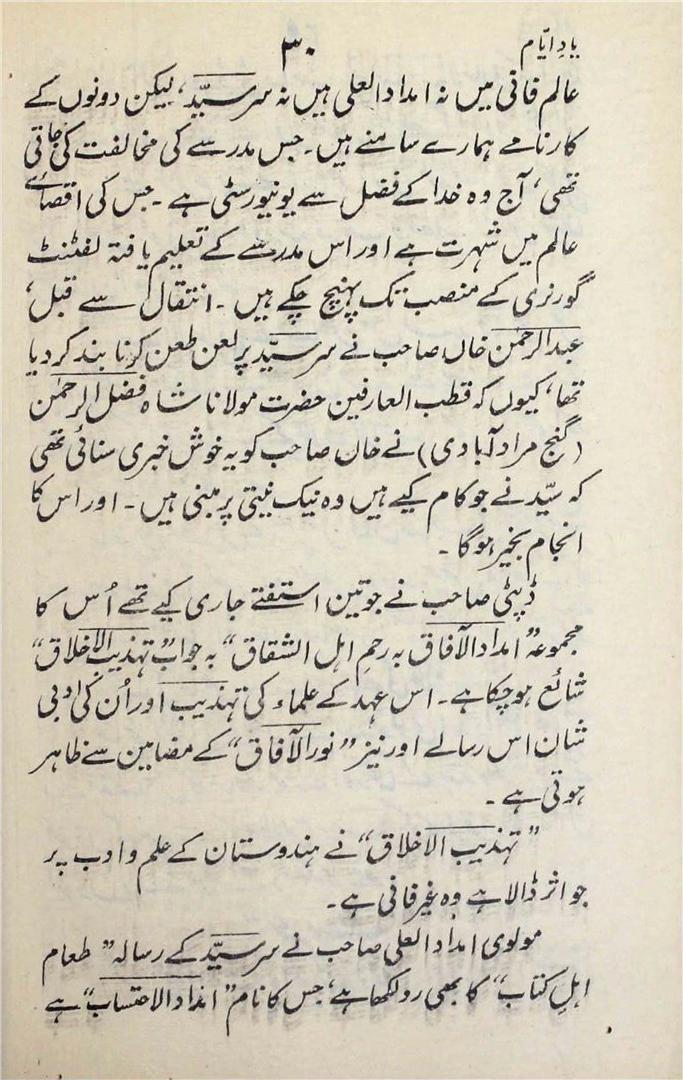 یادِ ایّام
۳۰
عالم فانی میں نہ امداد العلی ہیں نہ سر سیّد، لیکن دونوں کے
کارنامے ہمارے سامنے ہیں۔ جس مدرسے کی مخالفت کی جاتی
تھی، آج وہ خدا کے فضل سے یونیورسٹی ہے۔ جس کی اقصائے
عالم میں شہرت ہے اور اس مدرسے کے تعلیم یافتہ لفٹننٹ
گورنری کے منصب تک پہنچ چکے ہیں۔ انتقال سے قبل،
عبدالرحمٰن خاں صاحب نے سر سیّد پر لعن طعن کرنا بند کر دیا
تھا، کیوں کہ قطب العارفین حضرت مولانا شاہ فضل الرحمٰن
(گنج مراد آبادی) نے خان صاحب کو یہ خوش خبری سنائی تھی
کہ سیّد نے جو کام کیے ہیں وہ نیک نیتی پر مبنی ہیں۔ اور اس کا
انجام بخیر ہوگا۔
ڈپٹی صاحب نے جو تین استفتے جاری کیے تھے اُس کا
مجموعہ "امداد الآفاق بہ رحمِ اہل الشقاق" بہ جواب "تہذیب الاخلاق"
شائع ہو چکا ہے۔ اس عہد کے علماء کی تہذیب اور اُن کی ادبی
شان اس رسالے اور نیز "نور الآفاق" کے مضامین سے ظاہر
ہوتی ہے۔
"تہذیب الاخلاق" نے ہندوستان کے علم و ادب پر
جو اثر ڈالا ہے وہ غیر فانی ہے۔
مولوی امداد العلی صاحب نے سر سیّد کے رسالہ "طعام
اہلِ کتاب" کا بھی رد لکھا ہے، جس کا نام "امداد الاحتساب" ہے